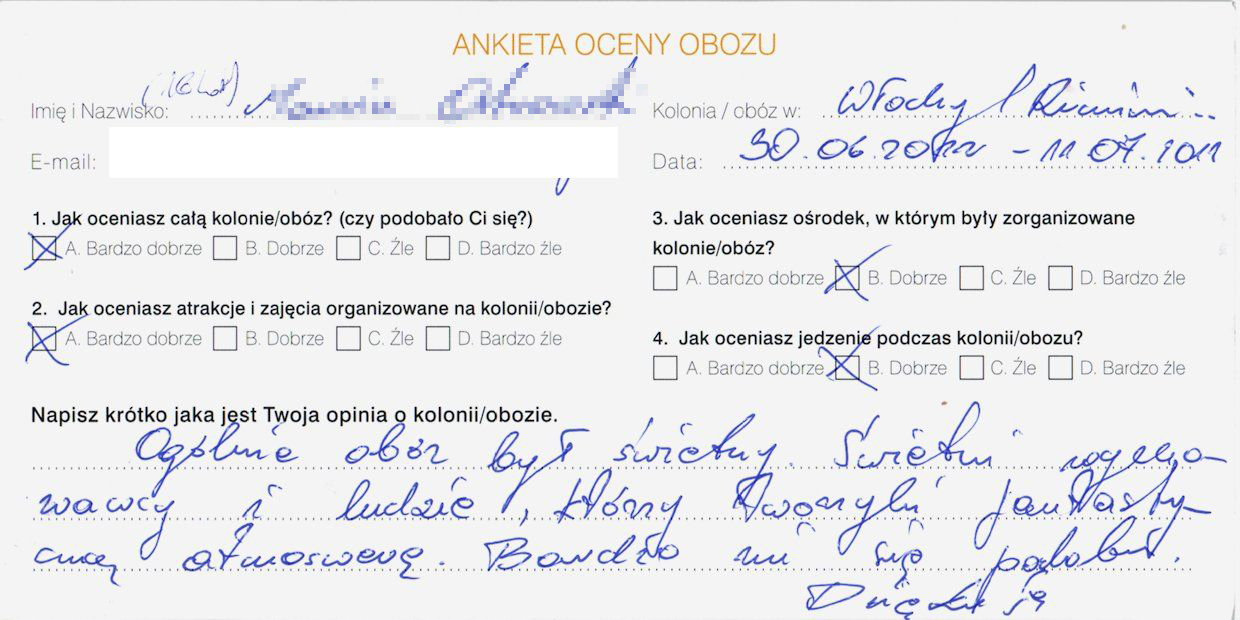 ANKIETA OCENY OBOZU
Imię i Nazwisko:
Kolonia / obóz w: Włochy / Rimini
E-mail:
Data: 30.06.2011 - 11.07.1011
1. Jak oceniasz całą kolonie/obóz? (czy podobało Ci się?)
A. Bardzo dobrze B. Dobrze C. Źle D. Bardzo źle
2. Jak oceniasz atrakcje i zajęcia organizowane na kolonii/obozie?
A. Bardzo dobrze B. Dobrze C. Źle D. Bardzo źle
3. Jak oceniasz ośrodek, w którym były zorganizowane
kolonie/obóz?
A. Bardzo dobrze B. Dobrze C. Źle D. Bardzo źle
4. Jak oceniasz jedzenie podczas kolonii/obozu?
A. Bardzo dobrze B. Dobrze C. Źle D. Bardzo źle
Napisz krótko jaka jest Twoja opinia o kolonii/obozie.
Ogólnie obóz był świetny. Świetni wycho-
wawcy i ludzie, którzy tworzyli fantasty-
czną atmoswerę. Bardzo mi się podobał.
Dziękuję